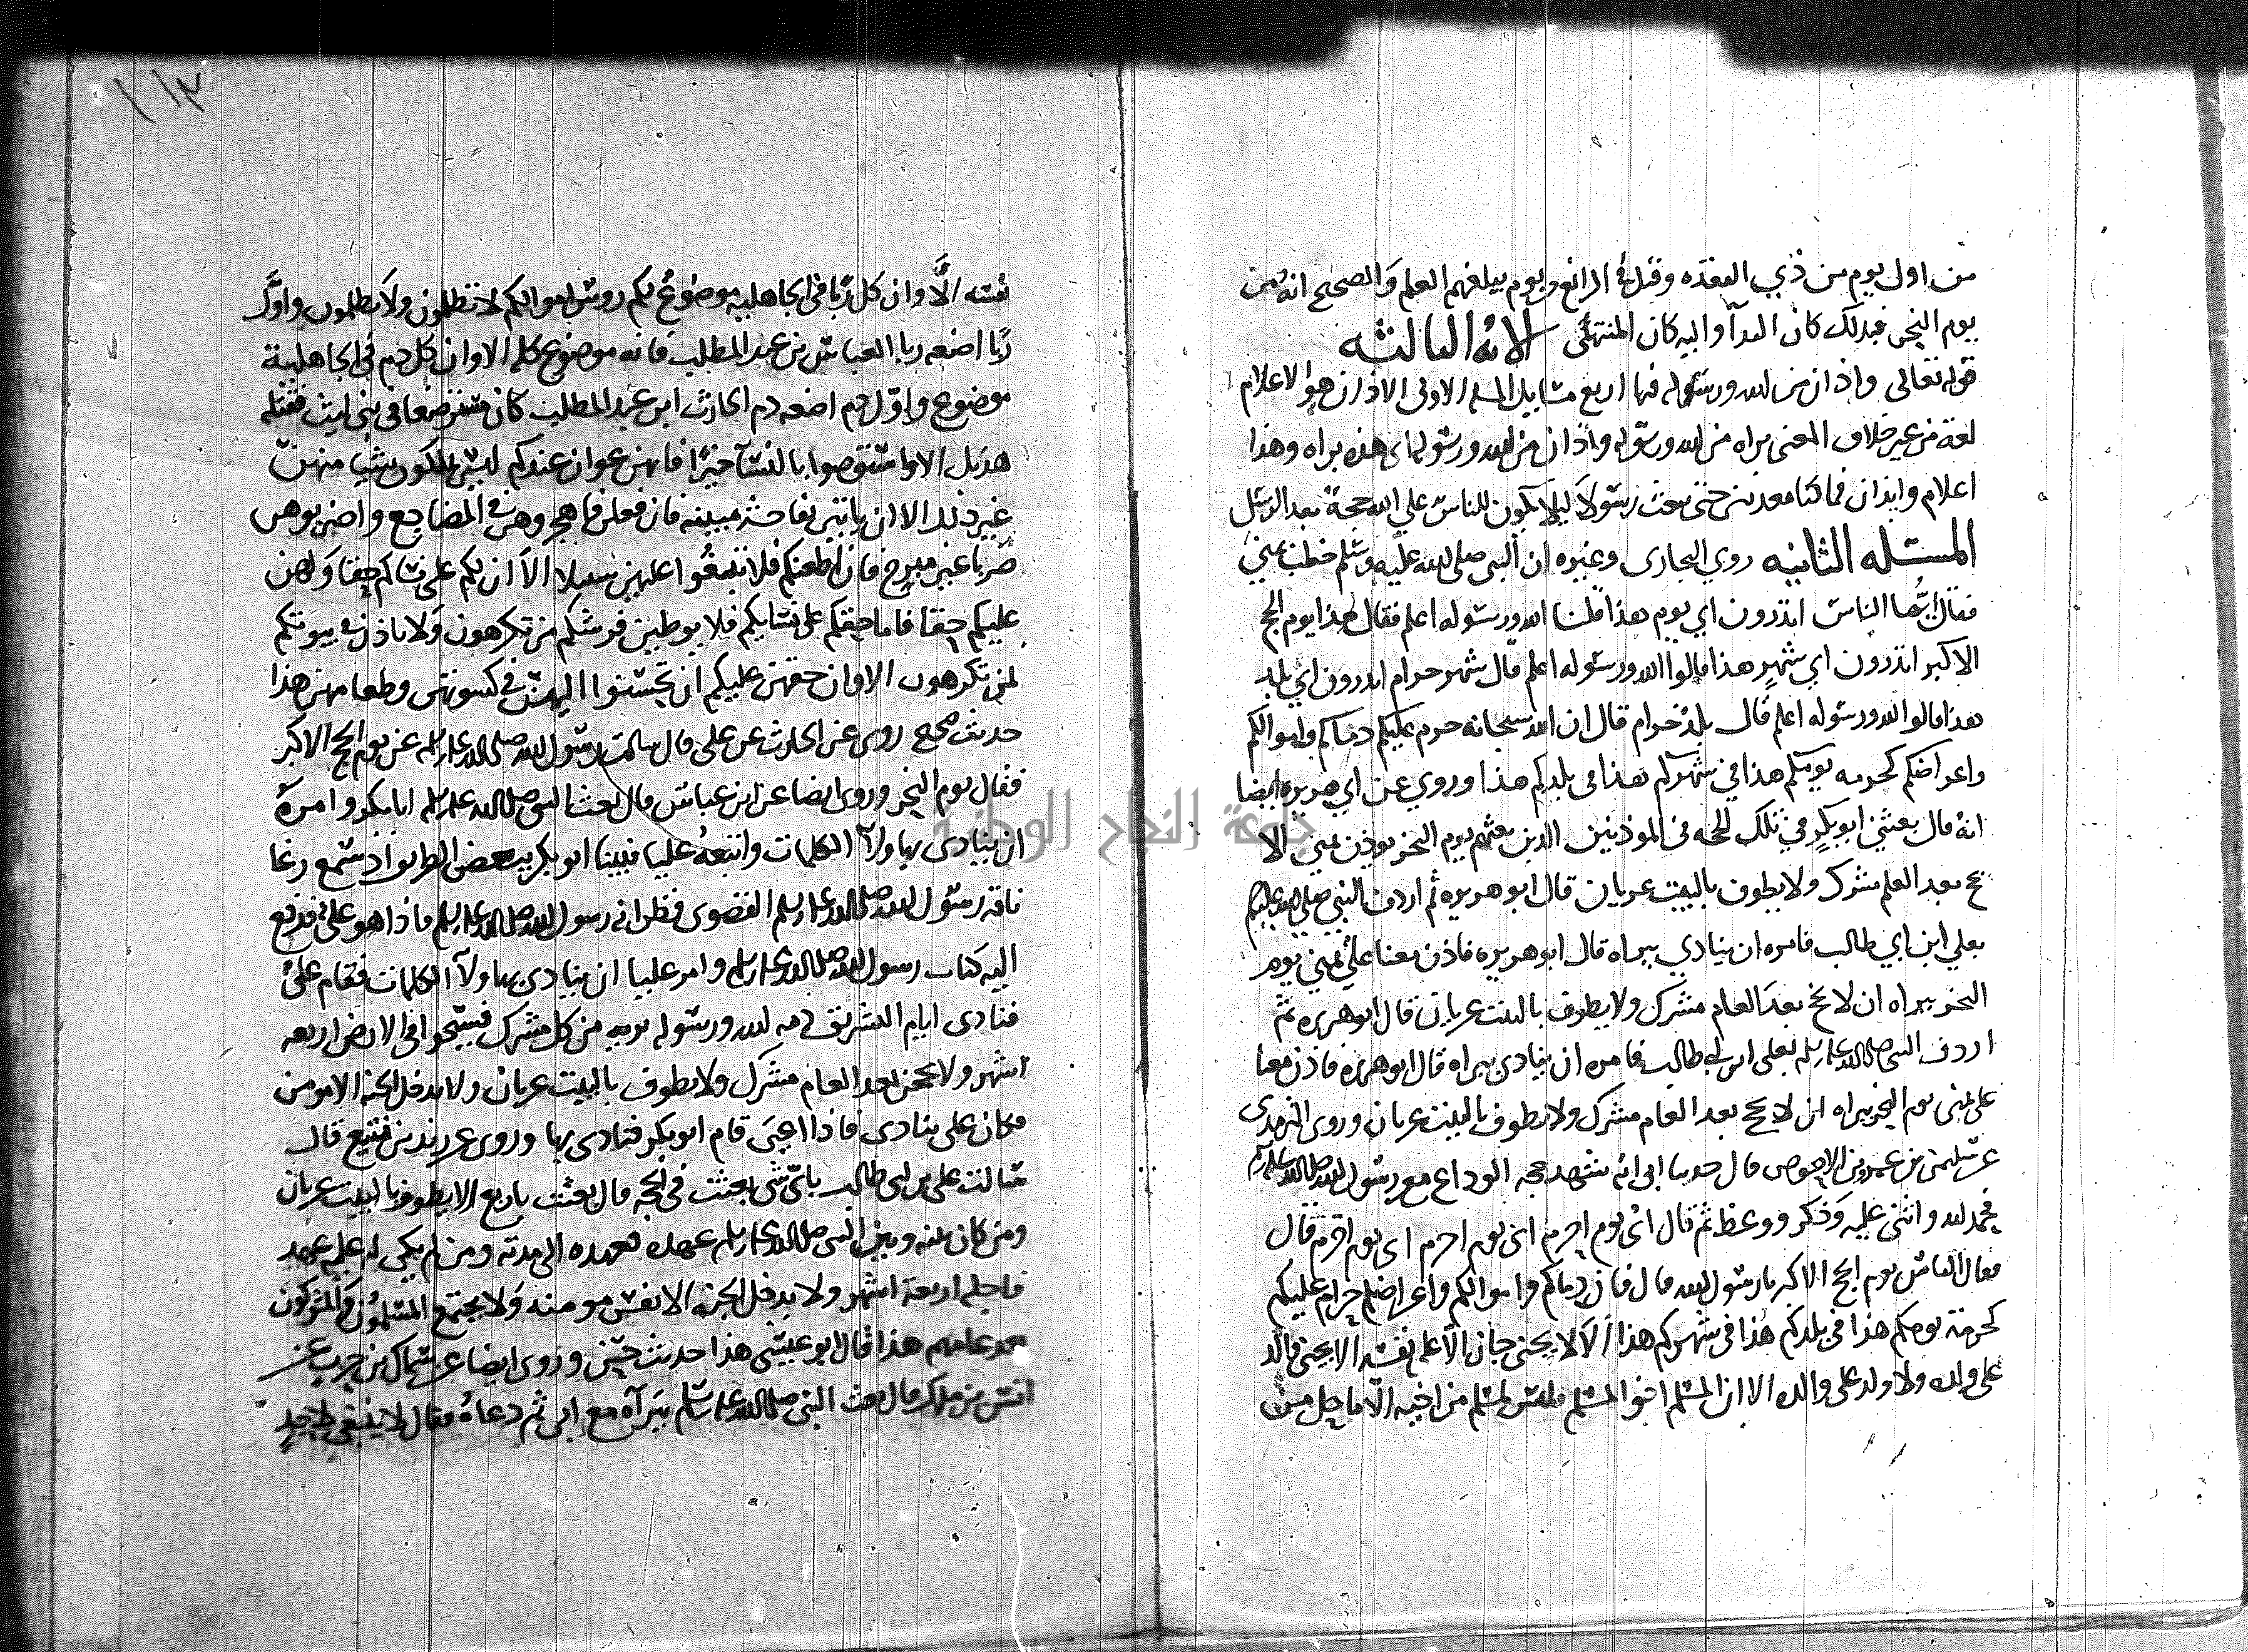 من اول يوم من ذي القعده وقيل في الرابع يوم يبلغهم العلم والصحيح انه من
يوم النحر فبذلك كان البدآ واليه كان المنتهى الايه الثالثه
قوله تعالى واذان من الله ورسوله فيها اربع مسايل المسله الاولى الاذان هو الاعلام
لغة من غير خلاف المعنى براه من الله ورسوله واذان من الله ورسوله اي هذه براه وهذا
اعلام وايذان فما كنا معذبين حتى نبعث رسولا ليلا يكون للناس علي الله حجة بعد الرسل
المسئله الثانيه روي البخاري وغيره ان النبي صلى الله عليه وسلم خطب بمني
فقال ايها الناس اتدرون اي يوم هذا قلنا الله ورسوله اعلم فقال هذا يوم الحج
الاكبر اتدرون اي شهر هذا قالوا الله ورسوله اعلم قال شهر حرام اتدرون اي بلد
هذا قالوا الله ورسوله اعلم قال بلد حرام قال ان الله سبحانه حرم عليكم دماكم واموالكم
واعراضكم كحرمه يومكم هذا في شهركم هذا في بلدكم هذا وروي عن ابي هريره ايضا
انه قال بعثني ابو بكر في تلك الحجه في الموذنين الذين بعثهم يوم النحر يوذن بمني الا
يحج بعد العلم مشرك ولا يطوف بالبيت عريان قال ابو هريره ثم اردف النبي صلي الله عليه وسلم
بعلي ابن ابي طالب فامره ان ينادي ببراه قال ابو هريره فاذن معنا علي بمني يوم
النحر ببراه ان لا يحج بعد العام مشرك ولا يطوف بالبيت عريان قال ابو هريره ثم
اردف النبي صلى الله عليه وسلم بعلي ابن ابي طالب فامره ان ينادي ببراه قال ابو هريره فاذن معنا
علي بمنى يوم النحر ببراه ان لا يحج بعد العام مشرك ولا يطوف بالبيت عريان وروى الترمذى
عن سليمن بن عمرو بن الاحوص قال حدثنا ابى انه شهد حجه الوداع مع رسول الله صلى الله عليه وسلم
فحمد الله واثنى عليه وذكر ووعظ ثم قال اى يوم احرم اى يوم احرم اى يوم احرم قال
فقال الناس يوم الحج الاكبر يا رسول الله قال فان دماكم واموالكم واعراضكم حرام عليكم
كحرمة يومكم هذا في بلدكم هذا في شهركم هذا الا لا يجنى جان الا على نفسه الا لا يجنى والد
على ولده ولا ولد على والده الا ان المسلم اخو المسلم فليس لمسلم من اخيه الا ما حل من
نفسه الا وان كل ربا في الجاهليه موضوع لكم روس اموالكم لا تظلمون ولا تظلمون واول
ربا اضعه ربا العباس بن عبد المطلب فانه موضوع كله الا وان كل دم في الجاهلية
موضوع واول دم اضعه دم الحارث ابن عبد المطلب كان مسترضعا في بنى ليث فقتله
هذيل الا واستوصوا بالنسآ خيرا فانهن عوان عندكم ليس تملكون شيا منهن
غير ذلك الا ان ياتين بفاحشه مبينه فان فعلن فاهجروهن في المضاجع واضربوهن
ضربا غير مبرح فان اطعنكم فلا تبغوا عليهن سبيلا الا ان لكم على نساكم حقا ولهن
عليكم حقا فاما حقكم على نسايكم فلا يوطين فرشكم من تكرهون ولا ياذن في بيوتكم
لمن تكرهون الا وان حقهن عليكم ان تحسنوا اليهن في كسوتهن وطعامهن هذا
حديث صحيح روى عن الحارث عن على قال سالت رسول الله صلى الله عليه وسلم عن يوم الحج الاكبر
فقال يوم النحر وروى ايضا عن ابن عباس قال بعث النبى صلى الله عليه وسلم ابا بكر وامره
ان ينادى بهاولآ الكلمات واتبعه عليا فبينا ابو بكر ببعض الطريق اذ سمع رغا
ناقه رسول الله صلى الله عليه وسلم القصوى فظن انه رسول الله صلى الله عليه وسلم فاذا هو على فدفع
اليه كتاب رسول الله صلى الله عليه وسلم وامر عليا ان ينادى بهاولآ الكلمات فقام على
فنادى ايام التشريق ذمه الله ورسوله بريه من كل مشرك فسيحوا في الارض اربعه
اشهر ولا يحجن بعد العام مشرك ولا يطوف بالبيت عريان ولا يدخل الجنه الا مومن
فكان على ينادى فاذا اعيى قام ابو بكر فنادى بها وروى عن زيد بن يثيع قال
سالت على بن ابى طالب باى شى بعثت في الحجه قال بعثت باربع الا يطوف بالبيت عريان
ومن كان بينه وبين النبى صلى الله عليه وسلم عهد فعهده الى مدته ومن لم يكن له عليه عهد
فاجله اربعة اشهر ولا يدخل الجنه الا نفس مومنه ولا يجتمع المسلمون والمشركون
بعد عامهم هذا قال ابو عيسى هذا حديث حسن وروى ايضا عن سماك بن حرب عن
انس بن ملك قال بعث النبى صلى الله عليه وسلم ببرآه مع ابى ثم دعاه فقال لا ينبغى لاحد
جامعة النجاح الوطنية